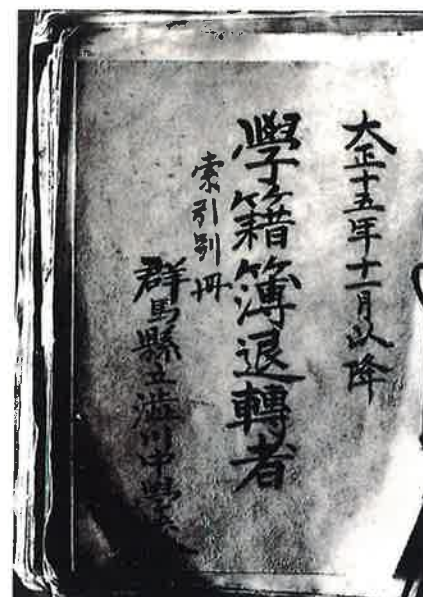 大正十五年十一月以降
學籍簿退轉者
索引別冊
群馬縣立澁川中學校